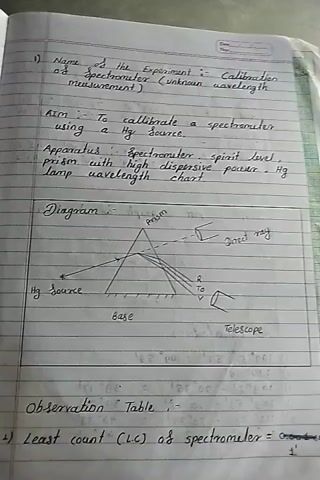 Date
1) Name of the Experiment :- Calibration
of Spectrometer (unknown wavelength
measurement)
Aim :- To callibrate a spectrometer
using a Hg Source.
Apparatus :- Spectrometer, spirit level,
prism with high dispersive power, Hg
lamp wavelength chart.
Diagram :-
Prism
Direct ray
Hg Source
R
To
V
Base
Telescope
Observation Table :-
1) Least count (L.C) of spectrometer =
1'